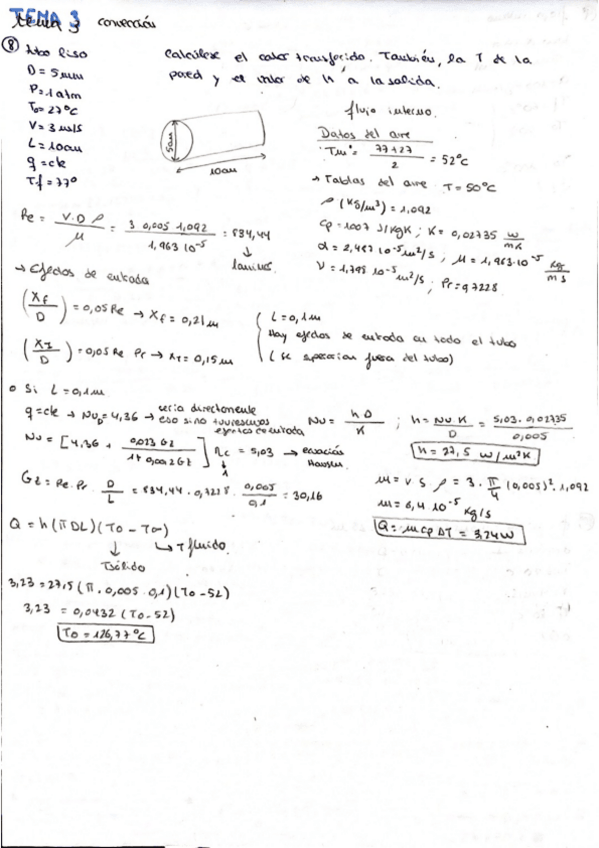 TEMA 3
tema 3 convección
⑧ tubo liso
D = 5mm
P = 1 atm
To = 27ºC
V = 3 m/s
L = 10cm
q = cte
Tf = 77º
Calcúlese el calor transferido. También, la T de la
pared y el valor de h a la salida.
5mm
10cm
flujo interno.
Datos del aire
Tm' = (77+27)/2 = 52ºC
→ Tablas del aire T = 50ºC
ρ (Kg/m³) = 1,092
Cp = 1007 J/KgK ; K = 0,02735 W/mK
α = 2,487 10⁻⁵ m²/s ; μ = 1,963·10⁻⁵ Kg/m s
ν = 1,798 10⁻⁵ m²/s ; Pr = 0,7228
Re = V·D·ρ/μ = 3 0,005 1,092/1,963 10⁻⁵ = 834,44
↓
laminar
→ Efectos de entrada
(Xf/D) = 0,05 Re → Xf = 0,21m
(XT/D) = 0,05 Re Pr → XT = 0,15m
L = 0,1m
Hay efectos de entrada en todo el tubo
(se superarían fuera del tubo)
o Si L = 0,1m
q = cte → NuD = 4,36 → sería directamente
eso si no tuviésemos
efectos de entrada
Nu = hD/K ; h = Nu K/D = 5,03·0,02735/0,005
h = 27,5 W/m²K
Nu = [4,36 + 0,023 Gz/1+0,0012 Gz] ηc = 5,03 → ecuación
Hausen
↓
1
Gz = Re·Pr·D/L = 834,44·0,7228·0,005/0,1 = 30,16
m = v s ρ = 3·π/4 (0,005)²·1,092
m = 6,4 10⁻⁵ Kg/s
Q = m cp ΔT = 3,24W
Q = h(πDL)(To − T∞)
↓ ↳ Tfluido
Tsólido
3,23 = 27,5 (π·0,005·0,1)(To − 52)
3,23 = 0,0432 (To − 52)
To = 126,77ºC